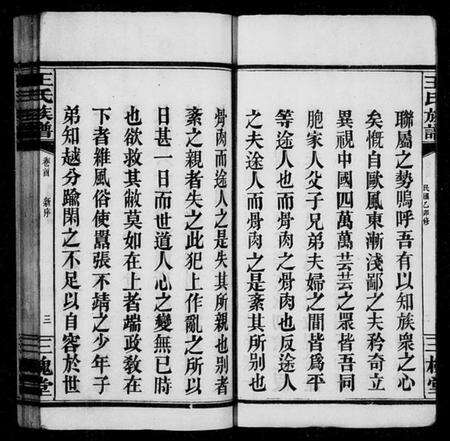 王氏族譜
民國乙卯修
三槐堂
聯屬之勢嗚呼吾有以知族眾之心
矣慨自歐風東漸淺鄙之夫矜奇立
異視中國四萬萬芸芸之眾皆吾同
胞家人父子兄弟夫婦之間皆爲平
等途人也而骨肉之骨肉也反途人
之夫途人而骨肉之是紊其所别也
骨肉而途人之是失其所親也别者
紊之親者失之此犯上作亂之所以
日甚一日而世道人心之變無已時
也欲救其敝莫如在上者端政教在
下者維風俗使囂張不靖之少年子
弟知越分踰閑之不足以自容於世
王氏族譜
卷首
新序
三
三槐堂